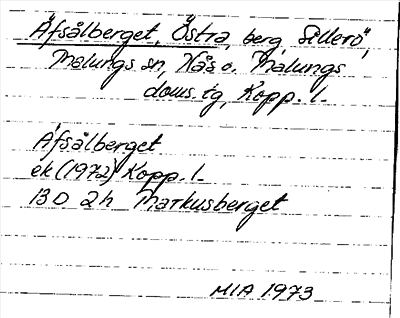 Äfsålberget, Östra, berg, Sillerö,
Malungs sn, Nås o. Malungs
doms. tg, Kopp. l.
Äfsålberget
ek (1972) Kopp. l.
13 D 2h Markusberget
MIA 1973